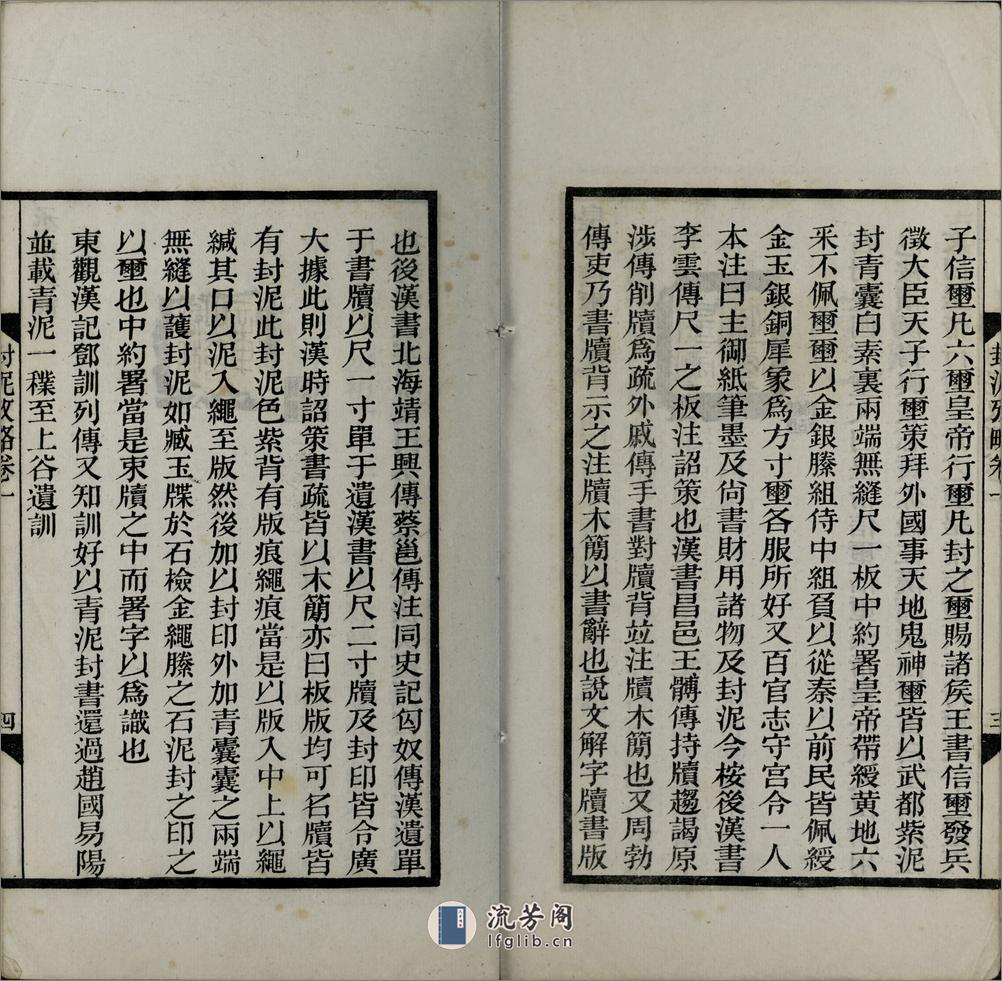 子信璽凡六璽皇帝行璽凡封之璽賜諸矦王書信璽發兵
徵大臣天子行璽策拜外國事天地鬼神璽皆以武都紫泥
封青囊白素裏兩端無縫尺一板中約署皇帝帶綬黃地六
采不佩璽璽以金銀縢組侍中組負以從秦以前民皆佩綬
金玉銀銅犀象爲方寸璽各服所好又百官志守宮令一人
本注曰主御紙筆墨及尙書財用諸物及封泥今桉後漢書
李雲傳尺一之板注詔策也漢書昌邑王髆傳持牘趨謁原
涉傳削牘爲疏外戚傳手書對牘背竝注牘木簡也又周勃
傳吏乃書牘背示之注牘木簡以書辭也說文解字牘書版
也後漢書北海靖王興傳蔡邕傳注同史記匈奴傳漢遺單
于書牘以尺一寸單于遺漢書以尺二寸牘及封印皆令廣
大據此則漢時詔策書疏皆以木簡亦曰板版均可名牘皆
有封泥此封泥色紫背有版痕繩痕當是以版入中上以繩
緘其口以泥入繩至版然後加以封印外加青囊囊之兩端
無縫以護封泥如臧玉牒於石檢金繩縢之石泥封之印之
以璽也中約署當是束牘之中而署字以爲識也
東觀漢記鄧訓列傳又知訓好以青泥封書還過趙國易陽
並載青泥一穙至上谷遺訓
封泥攷略卷一
三
四
流芳阁
lfglib.cn